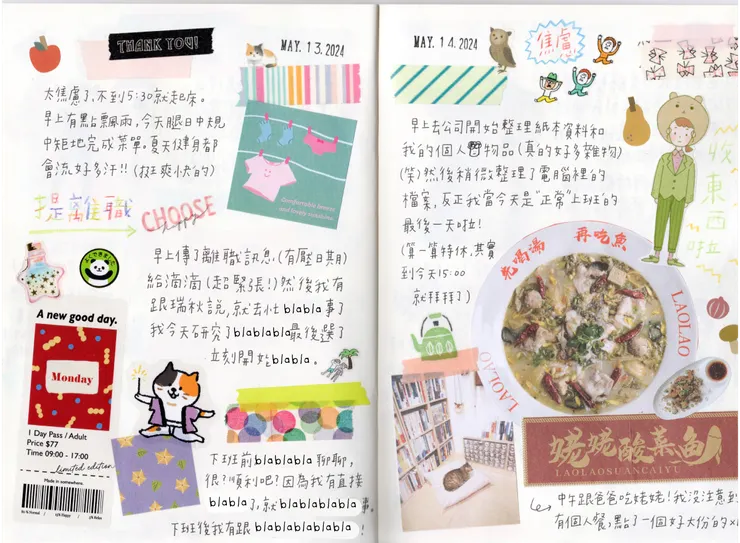 THANK YOU!
MAY. 13. 2024
太焦慮了,不到5:30就起床。
早上有點飄雨,今天腿日中規
中矩地完成菜單。夏天健身都
會流好多汗!!(挺爽快的)
Comfortable breeze
and lovely sunshine
提離職
CHOOSE
早上傳了離職訊息,(有壓日期)
給滴滴(超緊張!)然後我有
跟瑞秋說,就去忙blabla事了
我今天研究了blablabla最後選了
立刻開始blabla。
A new good day.
Monday
1 Day Pass / Adult
Price $77
Time 09:00 - 17:00
Limited edition
Made in somewhere.
下班前blablabla聊聊,
很?順利吧?因為我有直接
blabla了,就blablablabla事。
下班後我有跟blablablablabla!
MAY. 14. 2024
焦慮
早上去公司開始整理紙本資料和
我的個人物品(真的好多雜物)
(笑)然後稍微整理了電腦裡的
檔案,反正我當今天是"正常"上班的
最後一天啦!
(算一算特休,其實
到今天15:00
就掰掰了)
收東西啦
先喝湯 再吃魚
LAOLAO
LAOLAO
姥姥酸菜魚
LAOLAOSUANCAIYU
中午跟爸爸吃姥姥!我沒注意到
有個人餐,點了一個好大份的